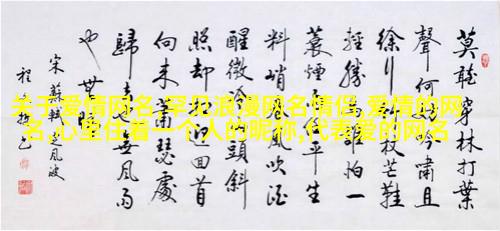 莫聽穿林打葉
聲何妨吟嘯且
徐行竹杖芒鞋
輕勝馬誰怕一
蓑煙雨任平生
料峭春風吹酒
醒微冷山頭斜
照却相迎回首
向來蕭瑟處
歸去也無風雨
也無晴
宋蘇軾定風波
关于爱情网名,罕见浪漫网名情侣,爱情的网
名,心里住着一个人的昵称,代表爱的网名